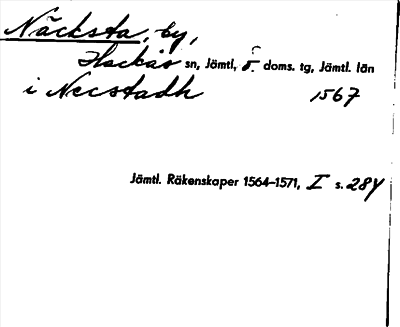 Näcksta, by,
Hackås sn, Jämtl, s. doms. tg, Jämtl. län
i Necstadh 1567
Jämtl. Räkenskaper 1564–1571, I s. 284